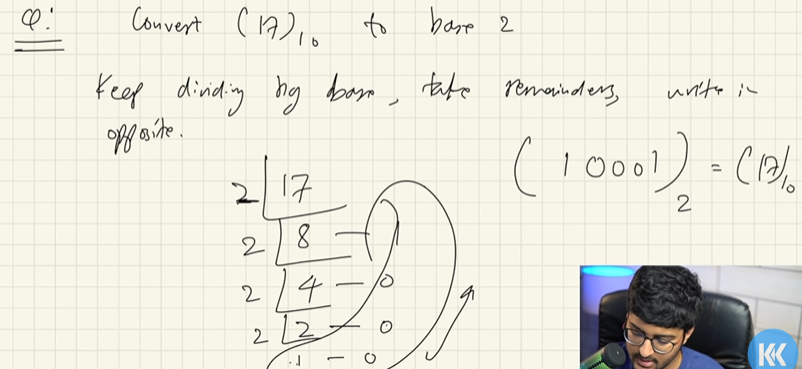 Q: Convert (17)10 to base 2
Keep dividing by base, take remainders, write in
opposite.
(10001)2 = (17)10
2 17
2 8 - 1
2 4 - 0
2 2 - 0
1 - 0
KK